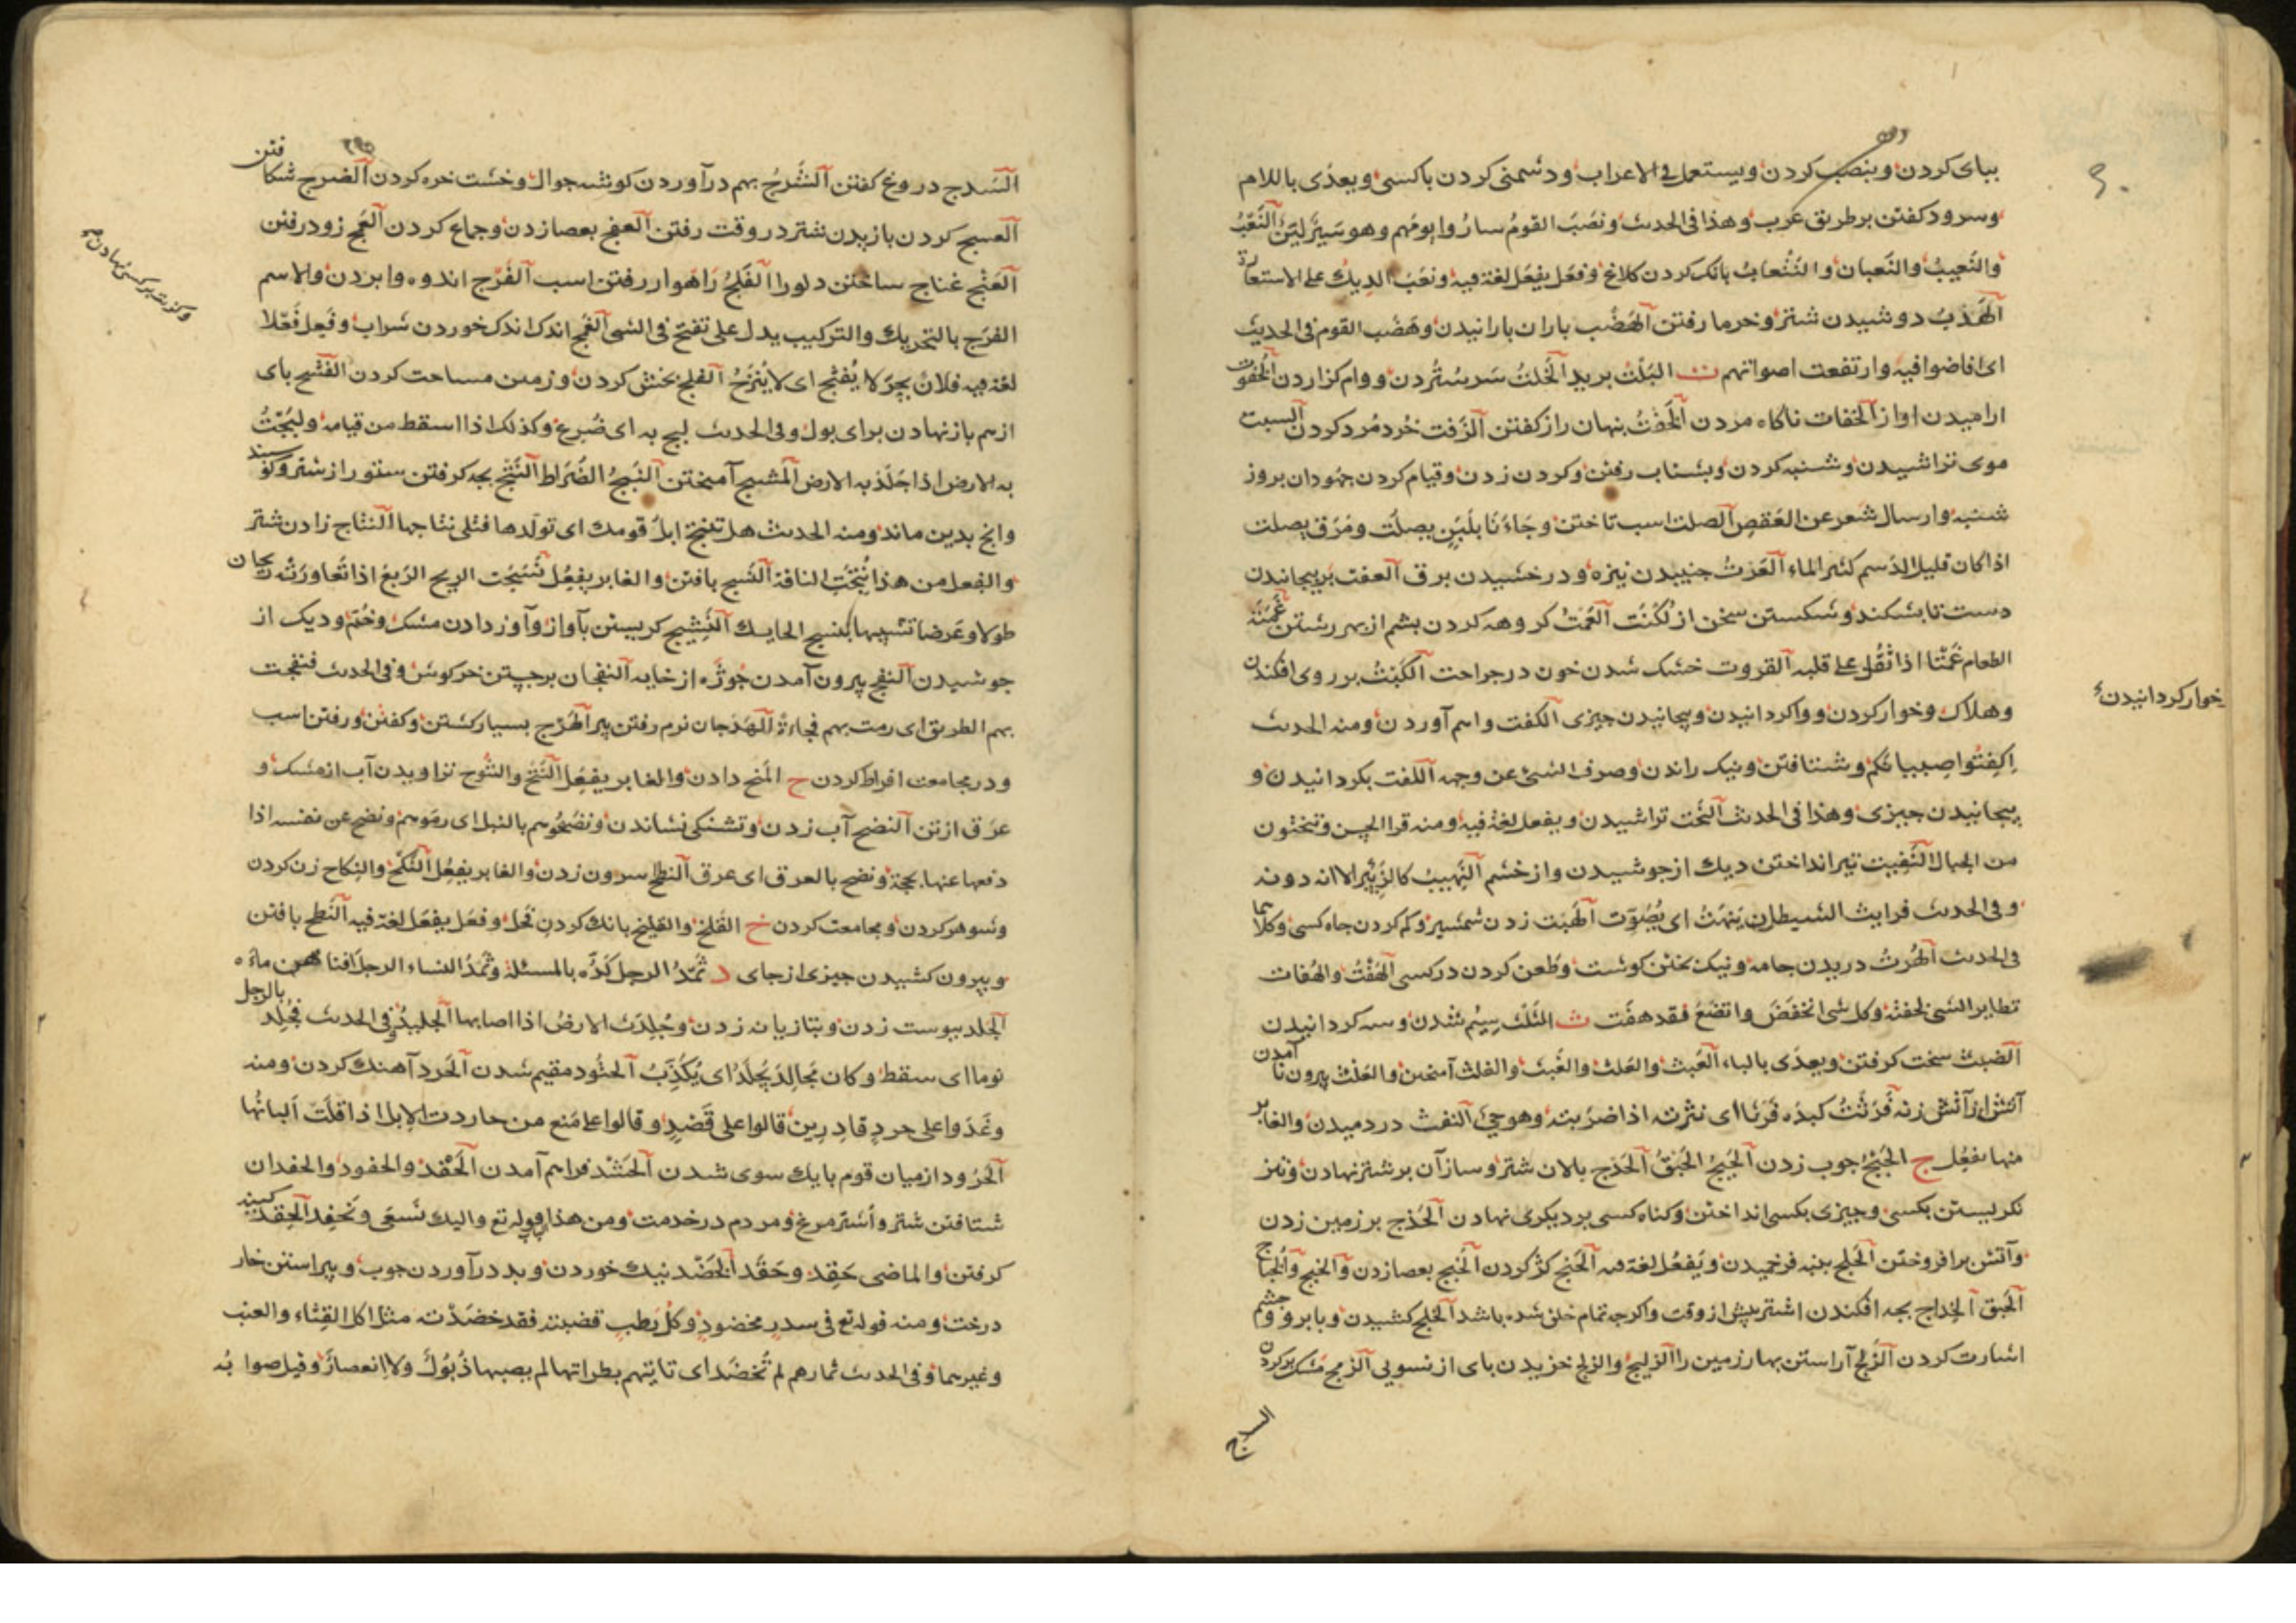 ببای کردن و بنصب کردن و یستعمل فی الاعراب و دشمنی کردن باکسی و یعدّی باللام
وسرود کفتن بر طریق عرب و هذا فی الحدیث و نصَبَ القومُ ساروا یومهم وهو سَیرٌ لیّن النَّعْبُ
والنَّعیبُ والنَّعبان والتَّنْعابُ بانک کردن کلاغ و فعَل یفعَل لغة فیه ونعَبَ الدیكُ علی الاستعارة
الهَدْبُ دوشیدن شتر و خرما رفتن الهَضْب باران بارانیدن و هَضَب القوم فی الحدیث
ای افاضوا فیه وارتفعت اصواتهم ت البَلْت برید الخَلتُ سَر ستُردن و وام کزاردن الخُفوت
ارامیدن اواز الخفات ناکاه مردن الخَفْتُ پنهان راز کفتن الرَّفت خُرد مُرد کردن السبت
موی تراشیدن و شنبه کردن و بشتاب رفتن و کردن زدن و قیام کردن جهودان بروز
شنبه وارسال شعر عن العَقصِ الصلت اسب تاختن وجَاءَنَا بلَبَنٍ یصلُت ومَرَقٍ یصلت
اذا کان قلیل الدّسم کثیر الماء العَرْتُ جنبیدن نیزه و درخشیدن برق العفت بر پیچانیدن
دست تا بشکند و شکستن سخن از لُکنَت العَمْتُ کروهه کردن پشم از بهر رشتن غَمَتَهُ
الطعام غَمْتًا اذا ثَقُل علی قلبه القروت خشک شدن خون در جراحت الکَبْتُ بر روی افکندن
وهلاک و خوار کردن و واکردانیدن و پیچانیدن چیزی الکفت واهم آوردن و منه الحدیث
اِکفِتُوا صبیانکم و شتافتن و نیک راندن و صرف الشئ عن وجهه اللفت بکردانیدن و
پیچانیدن چیزی و هذا فی الحدیث النَّحْت تراشیدن و یفعل لغة فیه و منه قرا الحسن وتنحَتون
من الجبال النَّفِیت تیر انداختن دیك از جوشیدن و از خشم النَّهِیتُ کالزَّئیر الا انه دونه
وفی الحدیث فرایتُ الشیطان یَنهَتُ ای یُصَوّت الهَبْت زدن شمشیر و کم کردن جاه کسی و کلاهما
فی الحدیث الهَرْتُ دریدن جامه و نیک پختن کوشت و طعن کردن در کسی الهَفْتُ والهُفات
تطایر الشئ لخفته وکل شئ انخفَضَ واتّضَعَ فقد هفَت ث الثَّلْث سِیُم شدن و سه کردانیدن
الضبث سخت کرفتن و یعدّی بالباء العَبْث والعَلث والغَبْث والغلث آمیختن والغَلْث بیرون نا آمدن
آتش از آتش زنه فَرَثْتُ کبدَه فَرْثًا ای نثرته اذا ضربته وهو حیّ النفث در دمیدن والغابر
منها یفعُل ج الحَبْجُ چوب زدن الحَبِیجُ الحَبَقُ الحَدْج بالان شتر و ساز آن بر شتر نهادن و تیز
نکریستن بکسی و چیزی بکسی انداختن و کناه کسی بر دیکری نهادن الحَذج بر زمین زدن
و آتش برافروختن الحَلج پنبه فرخمیدن و یفعُل لغة فیه الحَنْج کژ کردن الخَبْج بعصا زدن والخبج والخُباج
الحَبَق الخِداج بچه افکندن اشتر پیش از وقت و اکرچه تمام خلق شده باشد الخَلج کشیدن و بابرو و چشم
اشارت کردن الزَّبْج آراستن بهار زمین را الزَلیجُ والزلج خزیدن بای از نسویی الزمج مَشک پر کردن
السدج
خوار کردانیدن
السَدج دروغ کفتن الشَّرجُ بهم درآوردن کوشه جوال و خشت خره کردن الضرج شکافتن
العسج کردن بازیدن شتر در وقت رفتن العفج بعصا زدن و جماع کردن العَمج زود رفتن
العَنْج غناج ساختن دلو را الفَلْجُ رَاهوار رفتن اسب الفَرْج اندوه وابردن والاسم
الفرَج بالتحریك والترکیب یدل علی تفتّح فی الشئ الغَمج اندک اندک خوردن شراب و فَعِل فَعَلا
لغة فیه فلانٌ بحرٌ لا یُفثَج ای لا یُنزَحُ الفلج بخش کردن و زمین مساحت کردن الفَشْج بای
از هم بازنهادن برای بول و فی الحدیث لبج به ای صُرع و کذلک اذا اسقط من قیامه ولبَجْتُ
به الارض اذا جَلَدَ به الارض المَشْج آمیختن النَبجُ الضُراط النَّتْج بچه کرفتن ستور از شتر و کوسپند
وانچ بدین ماند و منه الحدیث هل تنتج ابلُ قومك ای تولّدها فتلی نتاجها النتاج زادن شتر
والفعل من هذا نُتِجَت الناقة النَّسج بافتن والغابر یفعُل نَسَجَت الریح الرَبعَ اذا تَعاورَتْه ریحان
طولا وعَرضا تشبیها بنسج الحایك النَّشِیج کریستن بآواز و آواز دادن مشک و خُم و دیک از
جوشیدن النفج بیرون آمدن جُوژه از خایه النفجان برجستن خرکوش و فی الحدیث فنفجت
بهم الطریق ای رمت بهم فجاءةً الهَدَجان نرم رفتن پیر الهَرْج بسیار کشتن و کفتن و رفتن اسب
و در مجامعت افراط کردن ح المَنح دادن والغابر یفعُل النَّتْح والنُّتوح تراویدن آب از مشک و
عرَق از تن النضح آب زدن و تشنکی نشاندن و نضَحُوهم بالنبل ای رمَوهم و نضح عن نفسه اذا
دفعها عنها بحجة و نضح بالعرق ای عرق النطح سرون زدن والغابر یفعُل النَّکْح والنِکاح زن کردن
و شوهر کردن و مجامعت کردن خ القَلخ والقلیخ بانک کردن فحل و فعَل یفعَل لغة فیه
و بیرون کشیدن چیزی از جای د ثَمَدَ الرجل کَدَّه بالمسئلة وثَمَدَ النساء الرجلَ افنا هن ماءه
الجَلد ببوست زدن و بتازیانه زدن وجُلِدَت الارضُ اذا اصابها الجلیدُ و فی الحدیث فجُلِد بالرجل
نوما ای سقط و کان مُجالِدٌ یُجلَدُ ای یُکَذَّبُ الحتُود مقیم شدن الحَرد آهنك کردن و منه
وغَدَوا علی حردٍ قادِرِین قالوا علی قَصْدٍ و قالوا علی مَنع من حاردت الابل اذا قلّت اَلبانُها
الحُرُود از میان قوم بایك سوی شدن الحَشْد فراهم آمدن الحَفْد والحفود والحفدان
شتافتن شتر و اُشتر مرغ و مردم در خدمت و من هذا قوله تع والیك نَسعَی ونحفِد الحِقْد کینه
کرفتن والماضی حَقِد وحَقَد الخَضْد نیك خوردن و بد درآوردن چوب و پیراستن خار
درخت و منه قوله تع فی سدرٍ مخضودٍ وکل رَطبٍ قضبته فقد خضَدْته مثل اکل القِثّاء والعنب
وغیرهما و فی الحدیث ثمارهم لم تُخضَد ای تاتیهم بطراتها لم یصبها ذُبُولٌ ولا انعصارٌ وقیل صوابُه